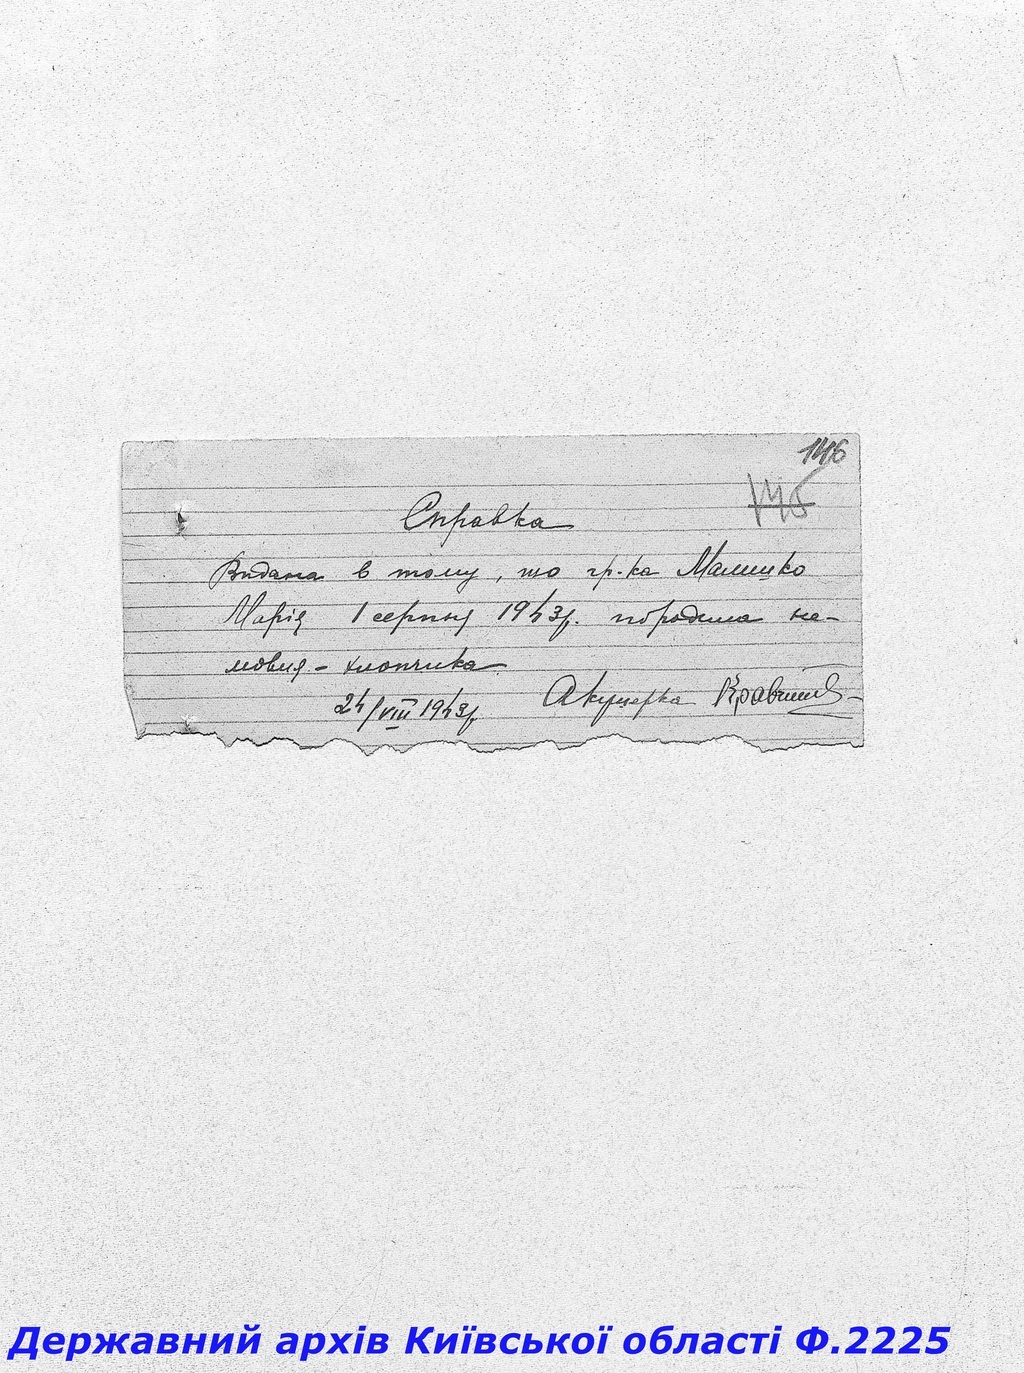 146
145
Справка
Видана в тому, що гр-ка Малишко
Марія 1 серпня 1943р. породила не-
мовля – хлопчика
24/VIII 1943р. Акушерка
Державний архів Київської області Ф.2225